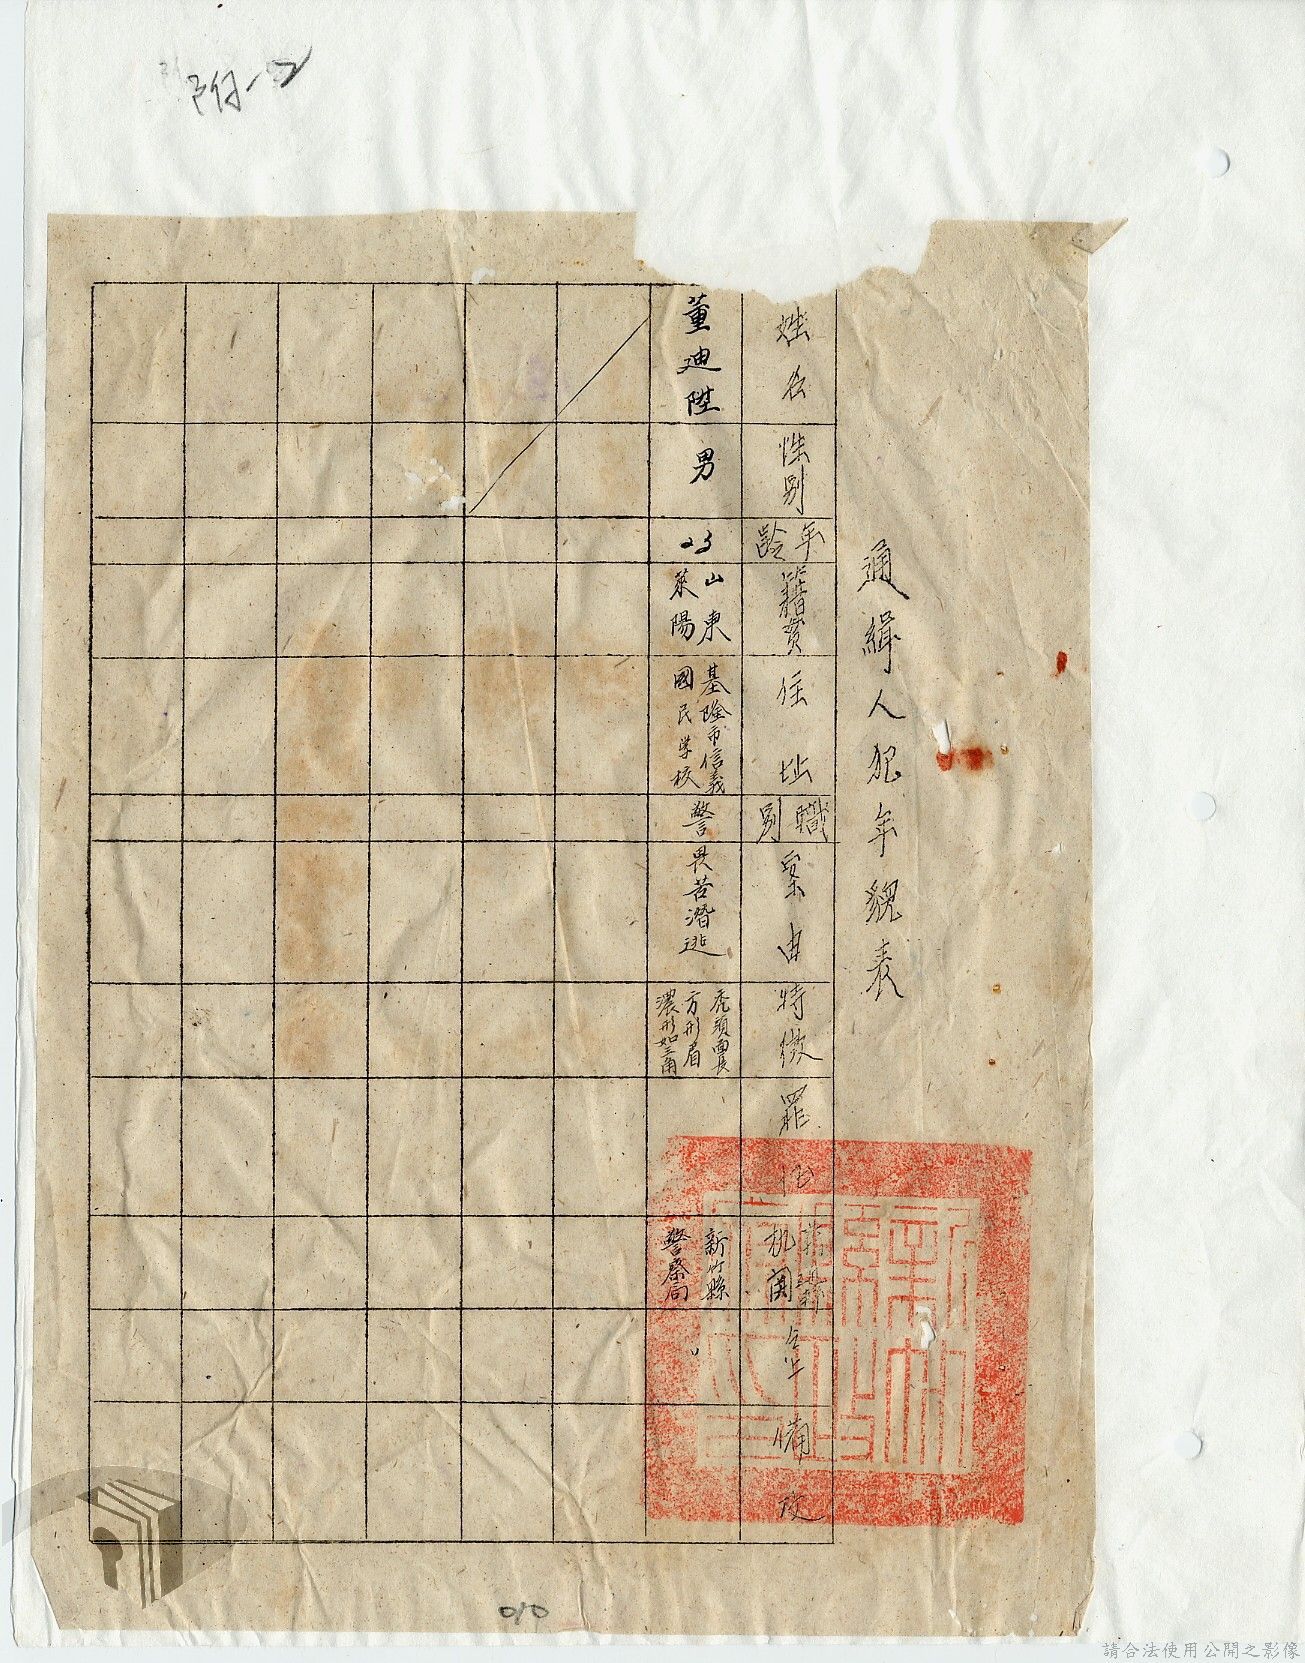 附-2
通緝人犯年貌表
姓名
性別
年齡
籍貫
住址
職別
案由
特徵
罪
机関
備攷
董迪陞
男
23
山東
萊陽
基隆市信義
國民学校
警
畏苦潛逃
禿頭面長
方形眉
濃形如三角
新竹縣
警察局
010
請合法使用公開之影像